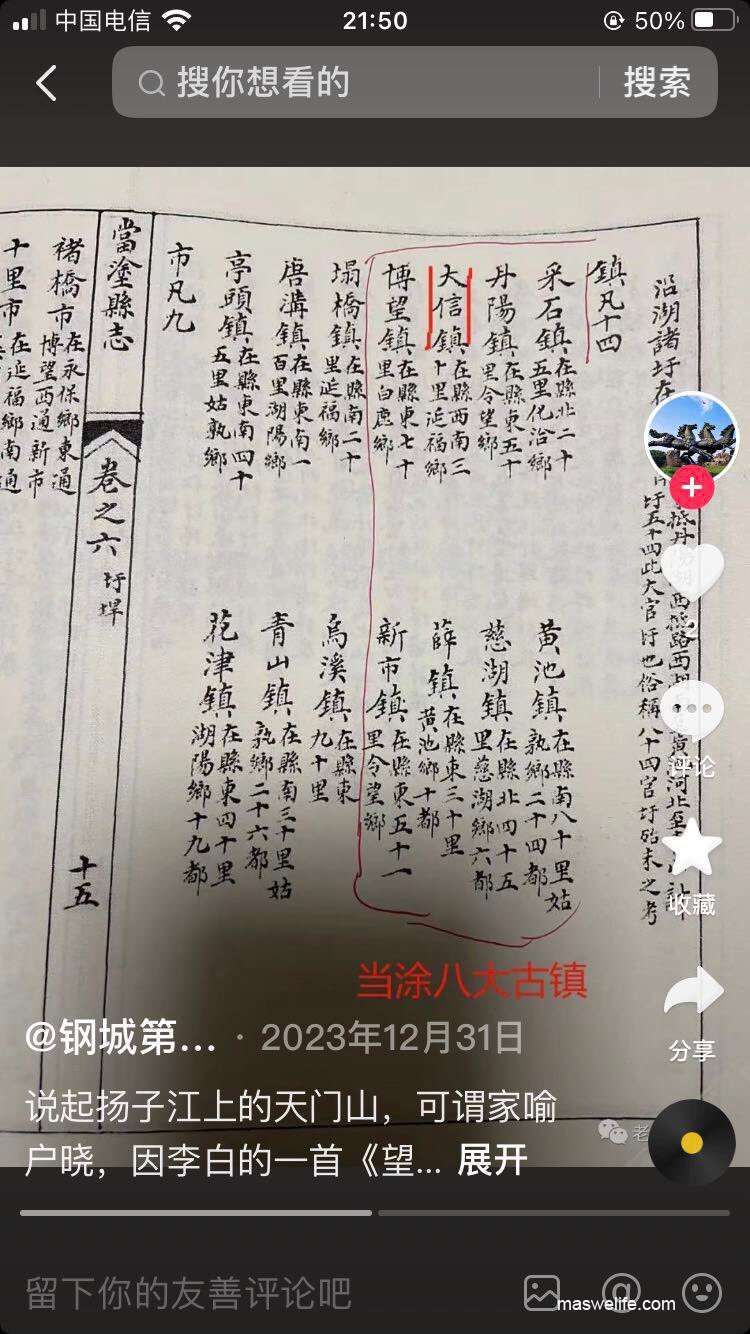 中国电信
21:50
50%
搜你想看的
搜索
沿湖諸圩在
西
路西
黃
河北至
圩五十四此大官圩也俗稱八十四官圩殆未之考
鎮凡十四
采石鎮在縣北二十五里化洽鄉
黃池鎮在縣南八十里姑孰鄉二十四都
丹陽鎮在縣東五十里令望鄉
慈湖鎮在縣北四十五里慈湖鄉六都
大信鎮在縣西南三十里延福鄉
薛鎮在縣東三十里黃池鄉十都
博望鎮在縣東七十里白鹿鄉
新市鎮在縣東五十一里令望鄉
塌橋鎮在縣南二十里延福鄉
烏溪鎮在縣東九十里
唐溝鎮在縣東南一百里湖陽鄉
青山鎮在縣南三十里姑孰鄉二十六都
亭頭鎮在縣東南四十五里姑孰鄉
花津鎮在縣東四十里湖陽鄉十九都
市凡九
當塗縣志
卷之六
圩埠
十五
褚橋市在永保鄉東通博望西通新市
十里市在延福鄉南通
当涂八大古镇
评论
收藏
分享
@钢城第... · 2023年12月31日
说起扬子江上的天门山，可谓家喻
户晓，因李白的一首《望... 展开
老
留下你的友善评论吧
maswelife.com